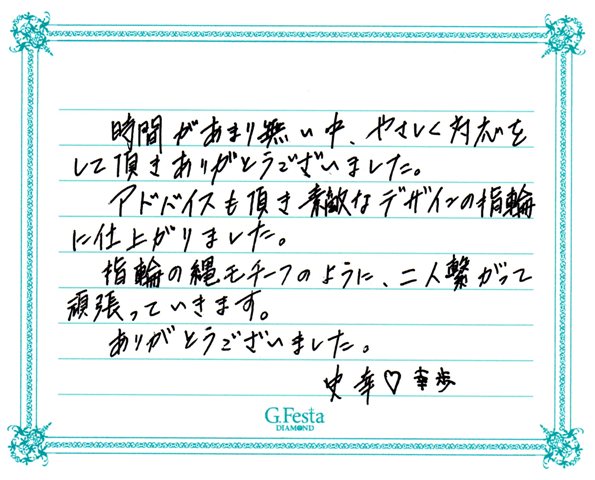 時間があまり無い中、やさしく対応を
して頂きありがとうございました。
アドバイスも頂き素敵なデザインの指輪
に仕上がりました。
指輪の縄モチーフのように、二人繋がって
頑張っていきます。
ありがとうございました。
史幸♡幸歩
G.Festa
DIAMOND